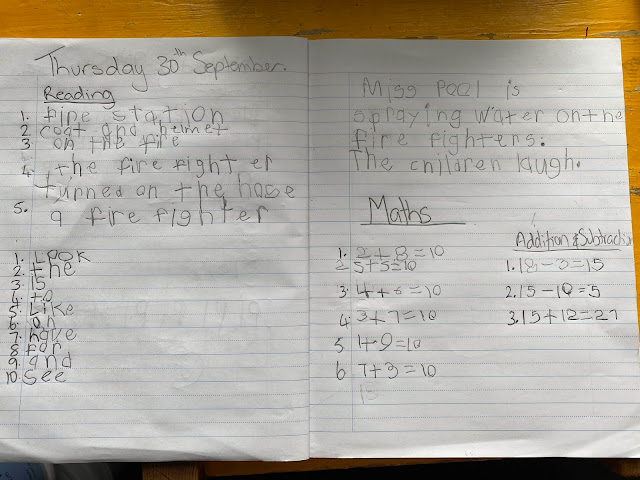 Thursday 30th September.
Reading
1. fire station
2 coat and helmet
3 on the fire
4. the fire fight er
turned on the hose
5. a fire fighter
1. Look
2. the
3. is
4. to
5. Like
6. on
7. have
8 for
9. and
10. see
Miss Pool is
spraying water on the
fire fighters.
The children laugh.
Maths
1. 2+8=10
2 5+5=10
3. 4+6=10
4. 3+7=10
5 1+9=10
6 7+3=10
Addition & Subtraction
1. 18-3=15
2. 15-10=5
3. 15+12=27